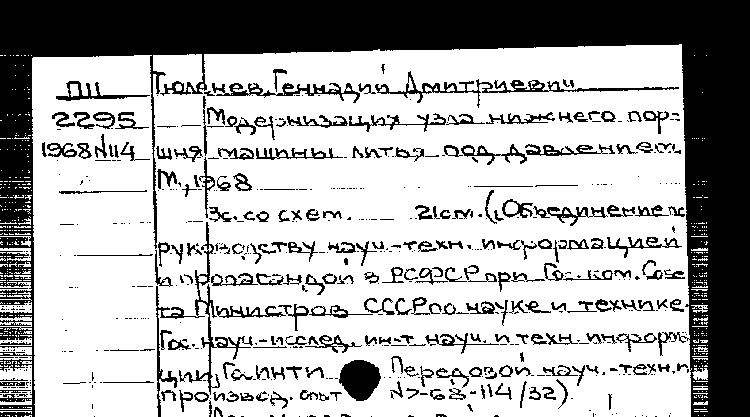 П11 Тюленев, Геннадий Дмитриевич.
2295 Модернизация узла нижнего пор-
1968 N114 шня машины литья под давлением.
М., 1968
3с. со схем. 21см. (Объединение по
руководству науч.-техн. информацией
и пропагандой в РСФСР при Гос. ком. Сове
та Министров СССР по науке и технике.
Гос. науч.-исслед. ин-т науч. и техн. информа
ции, Госинти Передовой науч.-техн. и
производ. опыт N7-68-114/32).